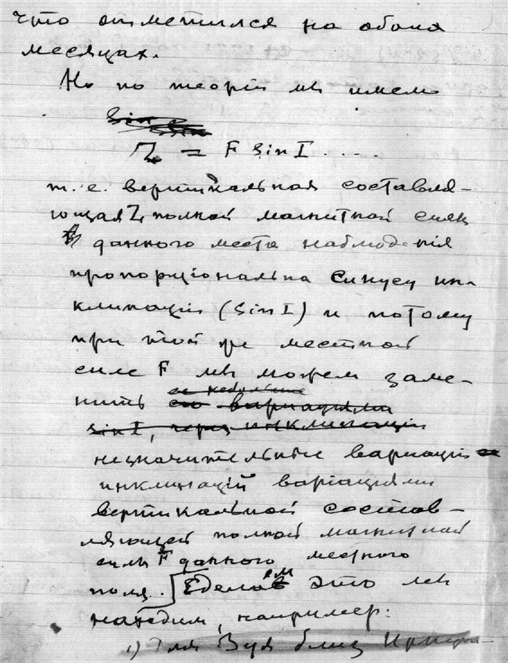 что отметился на обоих
месяцах.
Но по теорiи мы имеем
Z = F Sin I . . . .
т. е. вертикальная составля-
ющая Z полной магнитной силы
данного места наблюденiя
пропорцiональна синусу ин-
клинацiи (Sin I) и потому
при той же местной
силе F мы можем заме-
нить ее небольшие
его вариациями
Sin I, через инклинацiи
незначительные варiацiи
инклинацiй варiацiями
вертикальной состав-
ляющей полной магнитной
силы F данного местного
поля. Сделав это мы
находим, например:
1) Для Зуя близ